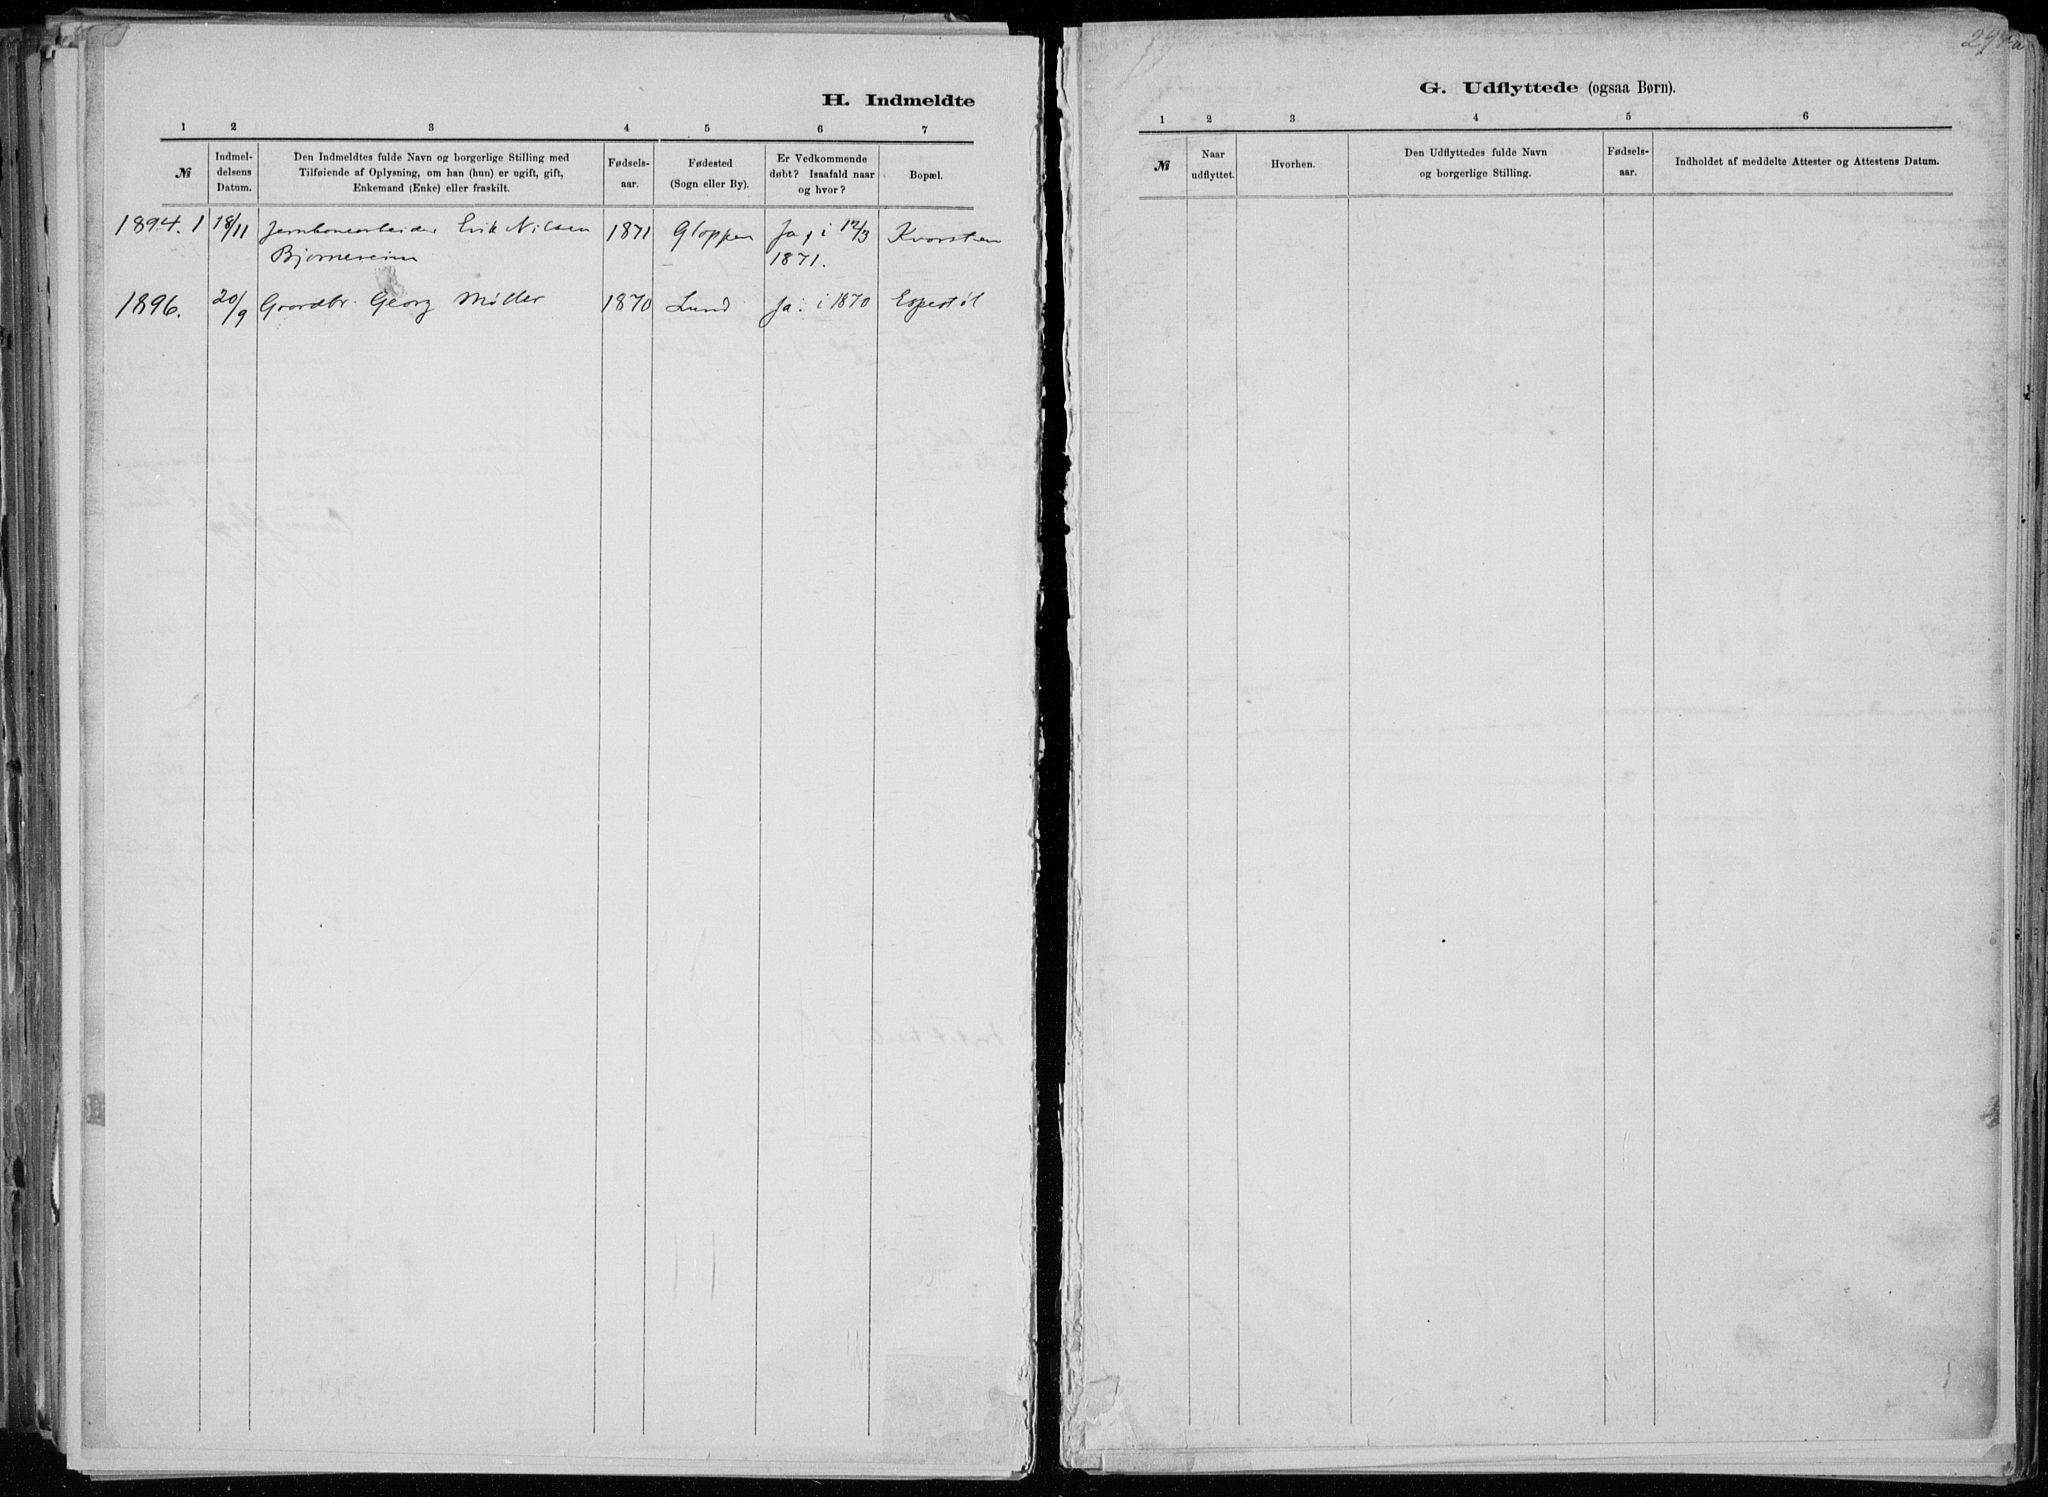 H. Indmeldte
1 2 3 4 5 6 7
№
Indmel-
delsens
Datum.
Den Indmeldtes fulde Navn og borgerlige Stilling med
Tilføiende af Oplysning, om han (hun) er ugift, gift,
Enkemand (Enke) eller fraskilt.
Fødsels-
aar.
Fødested
(Sogn eller By).
Er Vedkommende
døbt? Isaafald naar
og hvor?
Bopæl.
1894. 1 18/11 Jernbanearbeider Erik Nilsen 1871 Gloppen Ja, i 12/3
Bjørnereim 1871.
1896. 20/9 Gaardbr. Georg Møller 1870 Lund Ja: i 1870 Espestøl
G. Udflyttede (ogsaa Børn).
1 2 3 4 5 6
№
Naar
udflyttet.
Hvorhen.
Den Udflyttedes fulde Navn
og borgerlige Stilling.
Fødsels-
aar.
Indholdet af meddelte Attester og Attestens Datum.